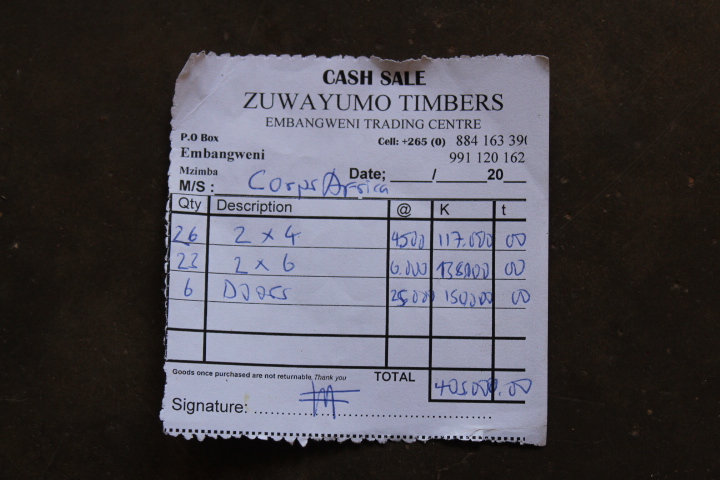 CASH SALE
ZUWAYUMO TIMBERS
EMBANGWENI TRADING CENTRE
P.O Box Cell: +265 (0) 884 163 390
Embangweni 991 120 162
Mzimba Date; ____/____20__
M/S : Corps Africa
Qty Description @ K t
26 2 x 4 4500 117.000 00
23 2 x 6 6.000 138000 00
6 Doors 25000 150000 00
Goods once purchased are not returnable Thank you TOTAL 405000.00
Signature: